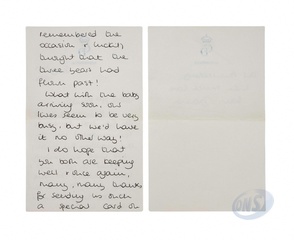 remembered the
occasion & luckily
thought that the
three years had
flown past!
What with the baby
arriving soon, our
lives seem to be very
busy, but we'd have
it no other way!
I do hope that
you both are keeping
well & once again,
many, many thanks
for sending us such
a special card on